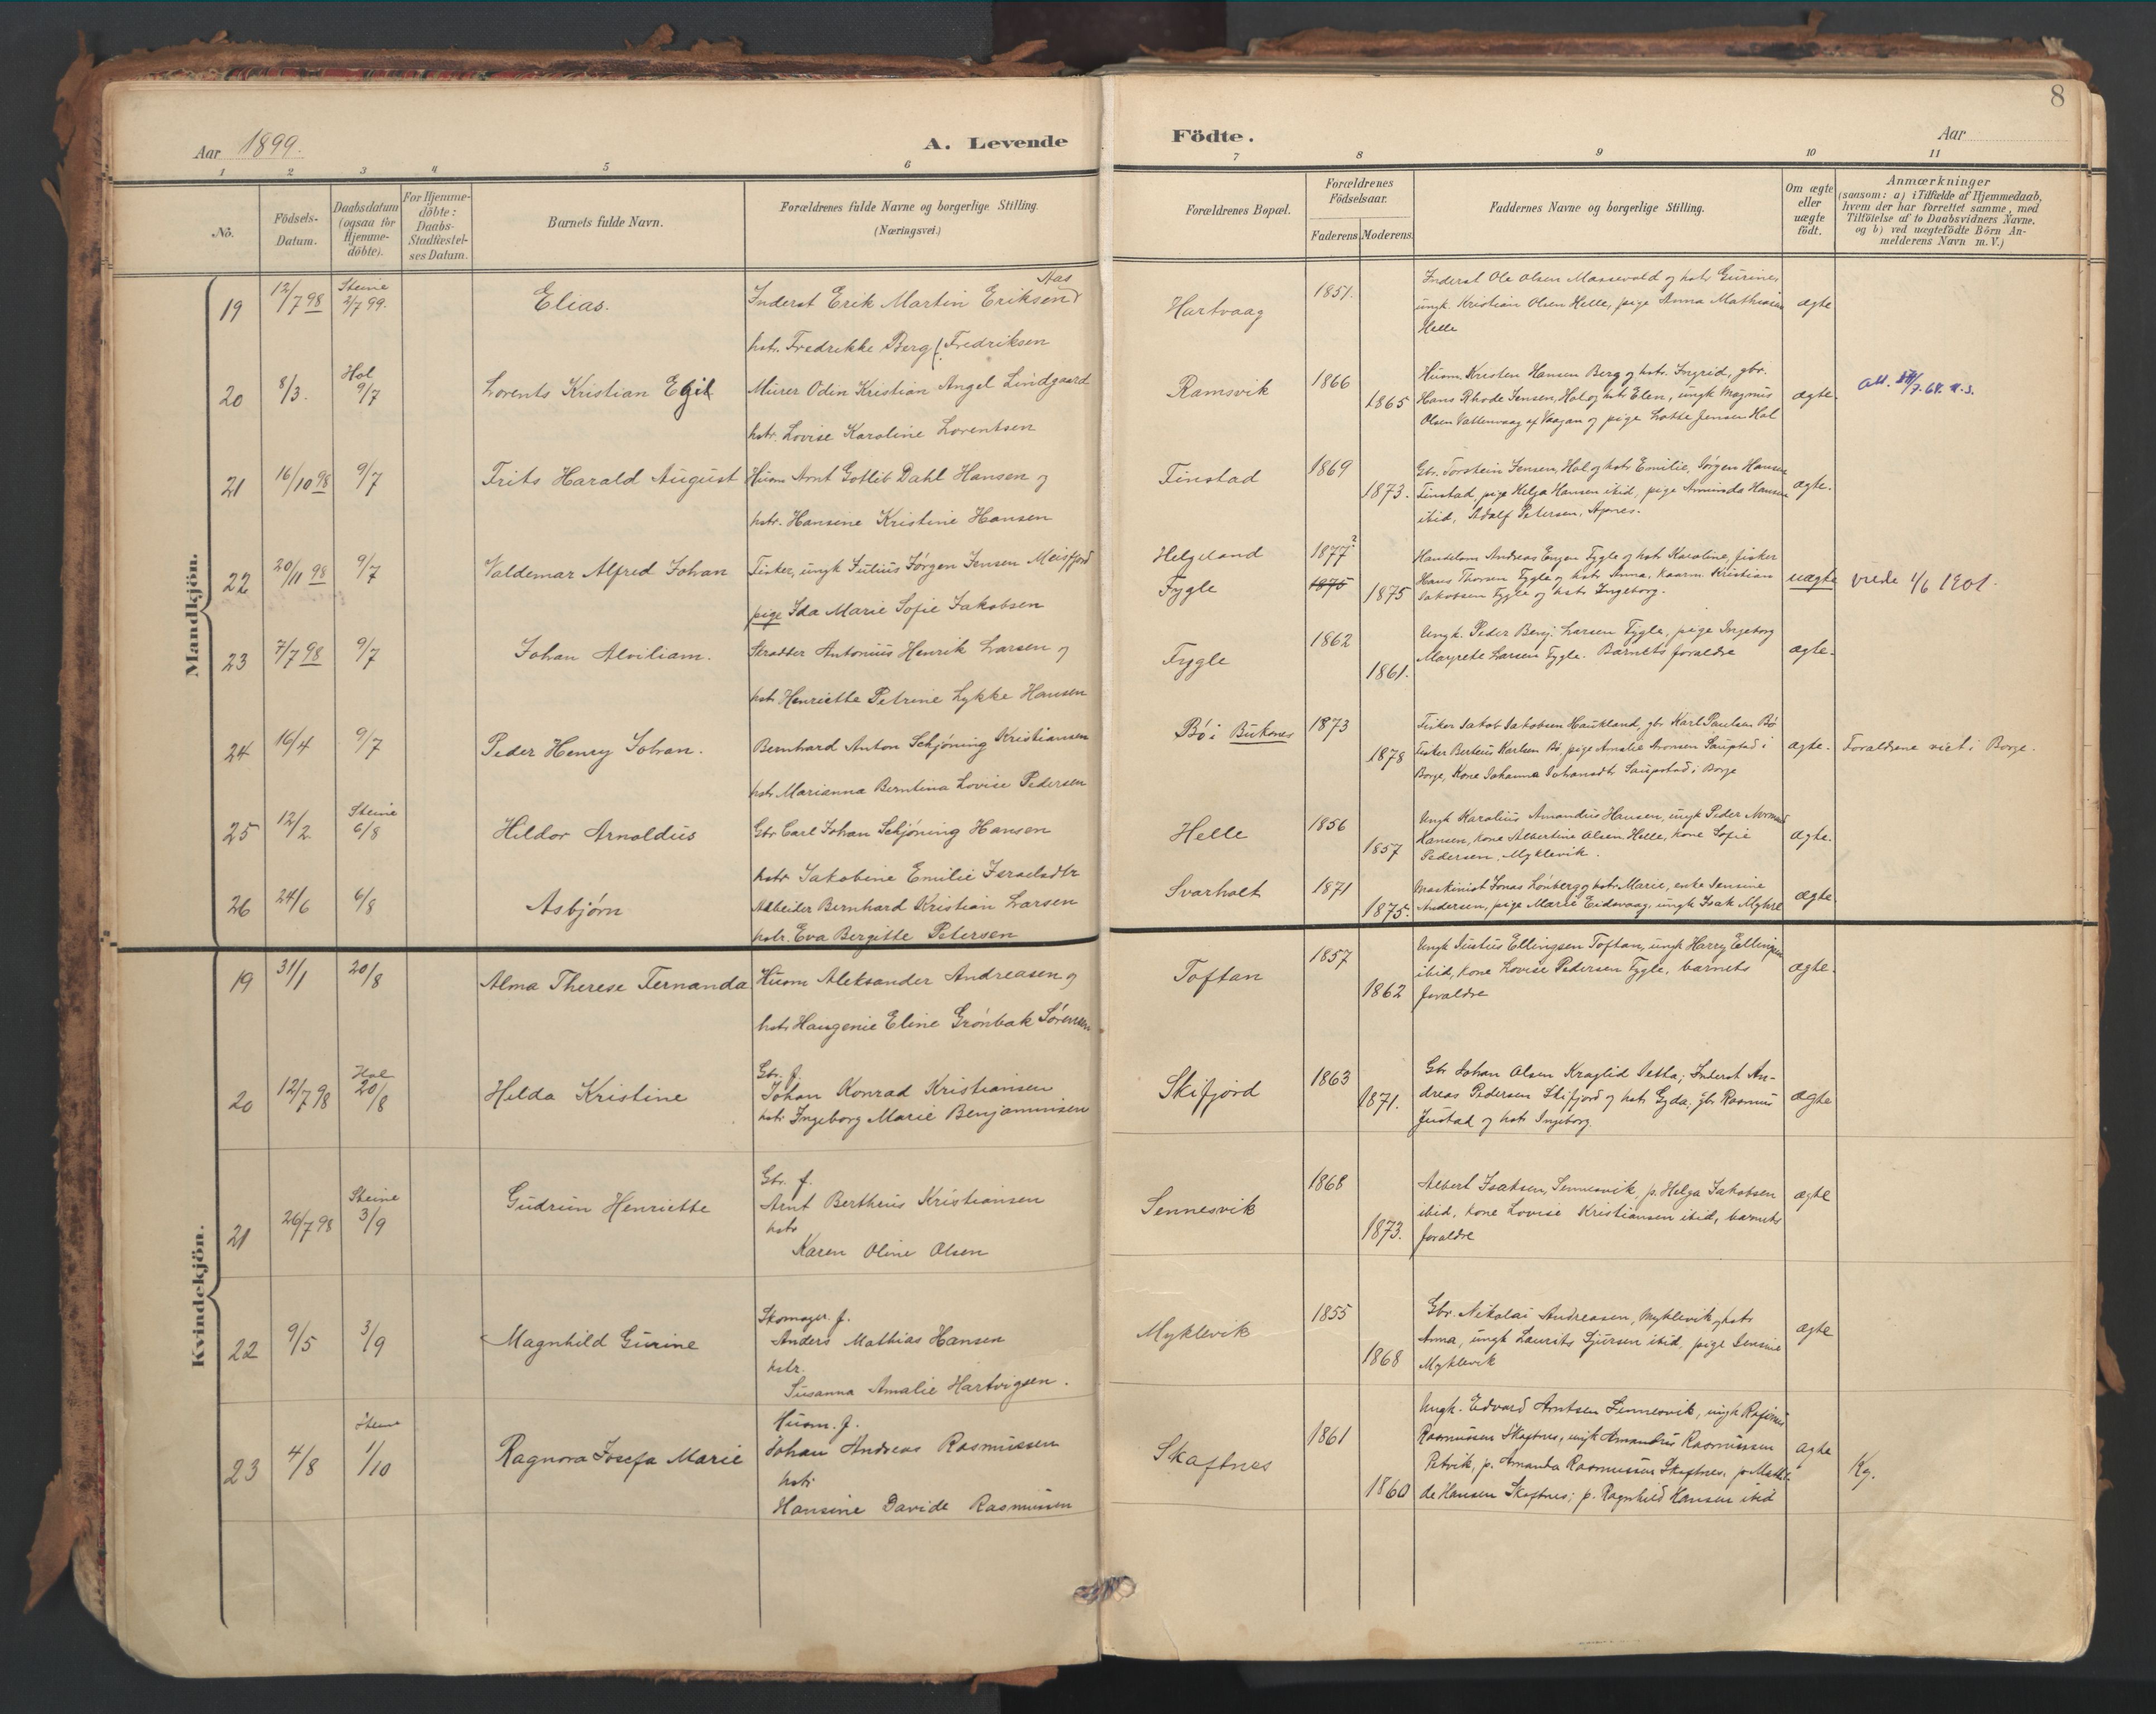 8
Aar 1899.
A. Levende
Födte.
Aar
1 2 3 4 5 6 7 8 9 10 11
No.
Födsels-
Datum.
Daabsdatum
(ogsaa for
Hjemme-
döbte).
For Hjemme-
döbte:
Daabs-
Stadfæstel-
ses Datum.
Barnets fulde Navn.
Forældrenes fulde Navne og borgerlige Stilling.
(Næringsvei.)
Forældrenes Bopæl.
Forældrenes
Födselsaar.
Faderens Moderens.
Faddernes Navne og borgerlige Stilling.
Om ægte
eller
uægte
födt.
Anmærkninger
(saasom: a) i Tilfælde af Hjemmedaab,
hvem der har forrettet samme, med
Tilföielse af to Daabsvidners Navne.
og b) ved uægtefödte Börn An-
melderens Navn m. V.)
Mandkjön.
19 12/7 98 Steine 2/7 99. Elias.
Aas
Inderst Erik Martin Eriksen
hstr. Fredrikke Berg (Fredriksen
Hartvaag 1851.
Inderst Ole Olsen Massevold og hstr Gurine,
ungk Kristian Olsen Helle, pige Anna Mathisen
Helle
ægte
20 8/3. Hol 9/7 Lorents Kristian Egil
Murer Odin Kristian Angel Lindgaard
hstr. Lovise Karoline Lorentsen
Ramsvik 1866 1865
Husm. Kristen Hansen Berg og hstr. Ingrid, gbr.
Hans Rhode Jensen, Hol og hstr Elen, ungk Magnus
Olsen Vattenvaag af Vaagan og pige Lotte Jensen Hol
ægte.
21 16/10 98 9/7 Frits Harald August
Husm Arnt Gotlib Dahl Hansen og
hstr. Hansine Kristine Hansen
Finstad 1869 1873.
Gbr. Torstein Jensen, Hol og hstr Emilie, Jørgen Hansen
Finstad, pige Helga Hansen ibid, pige Aminda Hansen
ibid, Adolf Petersen, Agnes.
ægte.
22 20/11 98 9/7 Valdemar Alfred Johan
Fisker, ungk Julius Jørgen Jensen Meisfjord
pige Ida Marie Sofie Jakobsen
Helgeland
Fygle
1877? 1875 1875
Handelsm Andreas Engen Fygle og hstr Karoline, fisker
Hans Thorsen Fygle og hstr Anna, Kaarm. Kristian
Jakobsen Fygle og hstr Ingeborg.
uægte viede 1/6 1901.
23 7/7 98 9/7 Johan Alviliam.
Skrædder Antonius Henrik Larsen og
hstr Henriette Petrine Lykke Hansen
Fygle 1862 1861.
Ungk. Peder Benj. Larsen Fygle, pige Ingeborg
Margrete Larsen Fygle. Barnets forældre
ægte.
24 16/4 9/7 Peder Henry Johan.
Bernhard Anton Schjöning Kristiansen
hstr Marianna Berntina Lovise Pedersen
Bö i Buksnes 1873 1878
Fisker Jakob Jakobsen Haukland, gbr Karl Paulsen Bø
Fisker Berteus Karlsen Bø, pige Amalie Aronsen Saupstad i
Borge, Kone Johanna Johansdtr Saupstad i Borge
ægte. Forældrene viet i Borge.
25 12/2 Steine 6/8 Hildor Arnoldus
Gbr Carl Johan Schjöning Hansen
hstr Jakobine Emilie Israelsdtr
Helle 1856 1857
Ungk Karolius Amandus Hansen, ungk Peder Normand
Hansen, kone Albertine Olsen Helle, kone Sofie
Pedersen, Myklevik.
ægte.
26 24/6 6/8 Asbjørn
Arbeider Bernhard Kristian Larsen
hstr. Eva Bergitte Petersen
Svarholt 1871 1875.
Maskinist Jonas Lönberg og hstr Marie, enke Jensine
Andersen, pige Marie Eidsvaag, ungk Isak Myhre
ægte
Kvindekjön.
19 31/1 20/8 Alma Therese Fernanda
Husm Aleksander Andreasen og
hstr Haugenie Eline Grönbæk Sörensen
Toftan 1857 1862
Ungk Justus Ellingsen Toftan, ungk Harry Ellingsen
ibid, kone Lovise Pedersen Fygle, barnets
forældre
ægte.
20 12/7 98 Hol 20/8 Hilda Kristine
Gbr. f.
Johan Konrad Kristiansen
hstr Ingeborg Marie Benjaminsen
Skifjord 1863 1871.
Gbr Johan Olsen Kraglid Petla; Inderst An-
dreas Pedersen Skifjord og hstr Gyda; gbr Rasmus
Justad og hstr Ingeborg
ægte
21 26/7 98 Steine 3/9 Gudrun Henriette
Gbr. f.
Arnt Bertheus Kristiansen
hstr
Karen Oline Olsen
Sennesvik 1868 1873.
Albert Isaksen, Sennesvik, p. Helga Jakobsen
ibid, kone Lovise Kristiansen ibid, barnets
forældre
ægte
22 9/5 3/9 Magnhild Gurine
Skomager f.
Anders Mathias Hansen
hstr.
Susanna Amalie Hartvigsen.
Myklevik 1855 1868
Gbr. Nikolai Andreasen, Myklevik og hstr
Anna, ungk Laurits Sjursen ibid, pige Jensine
Myklevik
ægte
23 4/8 Steine 1/10 Ragnora Josefa Marie
Husm. f.
Johan Andreas Rasmussen
hstr
Hansine Davide Rasmussen
Skaftnes 1861 1860
Ungk. Edvard Arntsen Sennesvik, ungk Rasmus
Rasmussen Skaftnes, ungk Amandus Rasmussen
Petvik, p. Amanda Rasmussen Skaftnes, p. Mathil-
de Hansen Skaftnes; p. Ragnhild Hansen ibid
ægte Kg.